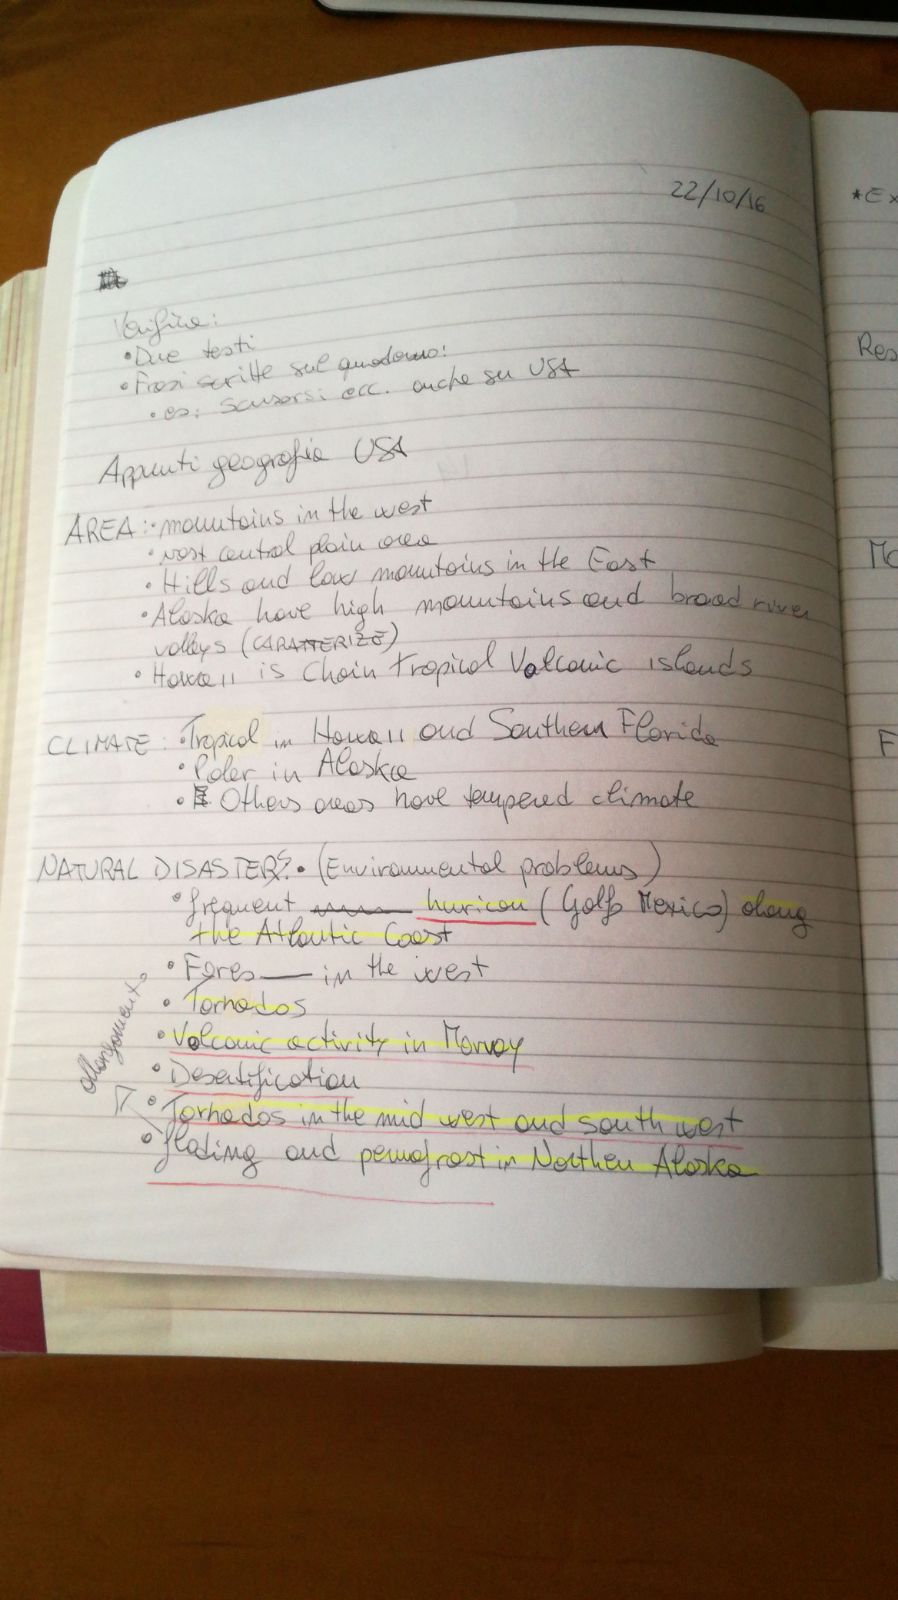 22/10/16
*Ex
Verifica:
• Due testi
• Frasi scritte sul quaderno:
• es: scusarsi ecc. anche su USA
Res
Appunti geografia USA
AREA: • mountains in the west
• vast central plain area
• Hills and low mountains in the East
• Alaska have high mountains and broad river
valleys (CARATTERIZE)
• Hawaii is Chain tropical Volcanic islands
CLIMATE: • Tropical in Hawaii and Southern Florida
• Polar in Alaska
• Others areas have tempered climate
F
NATURAL DISASTERS: • (Environmental problems)
• frequent hurican (Golfo Mexico) along
the Atlantic Coast
• Fores in the west
• Tornados
• Volcanic activity in
• Desertification
• Tornados in the mid west and south west
• flading and pemafrost in Northen Alaska